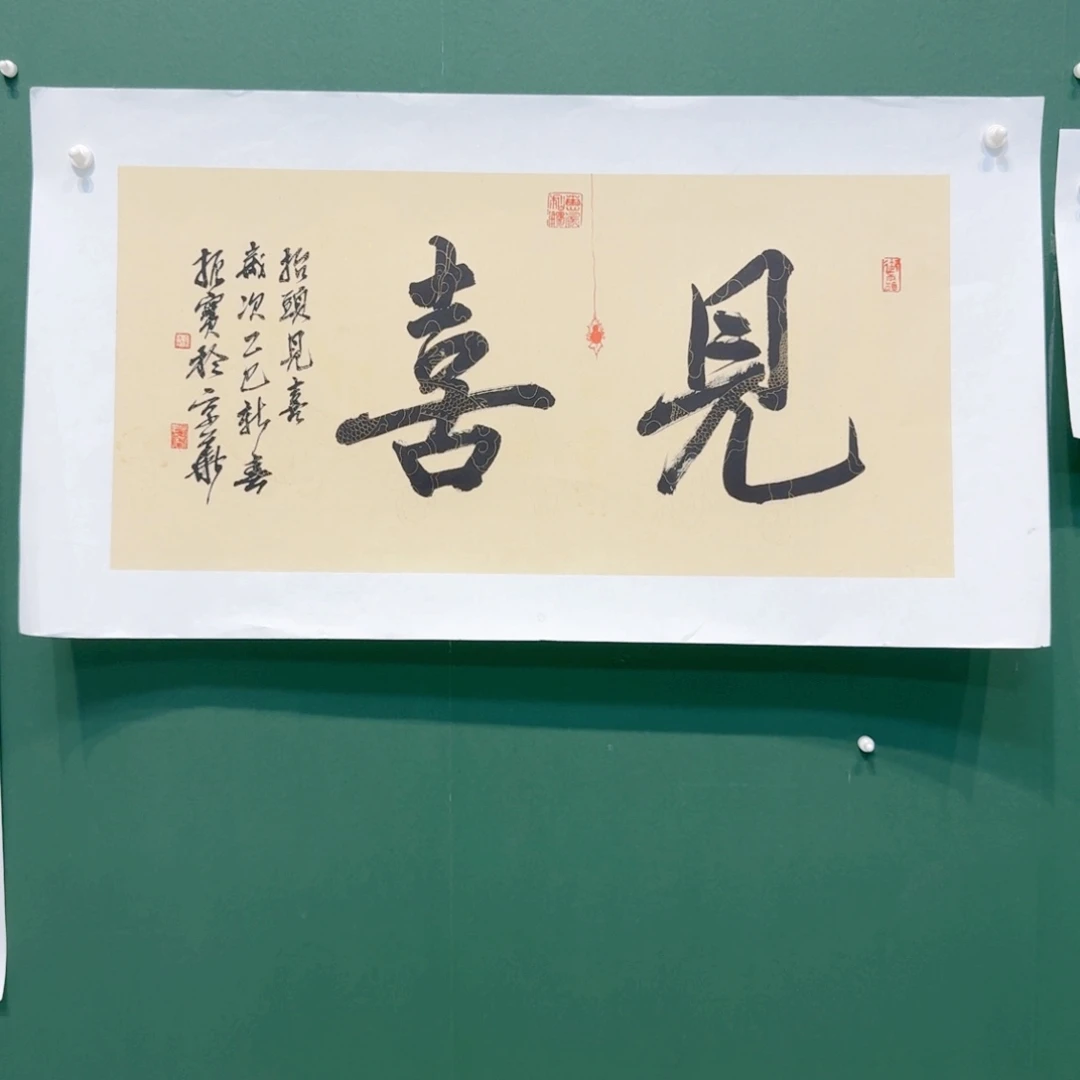 見喜
抬頭見喜
歲次乙巳新春
振寶於京華